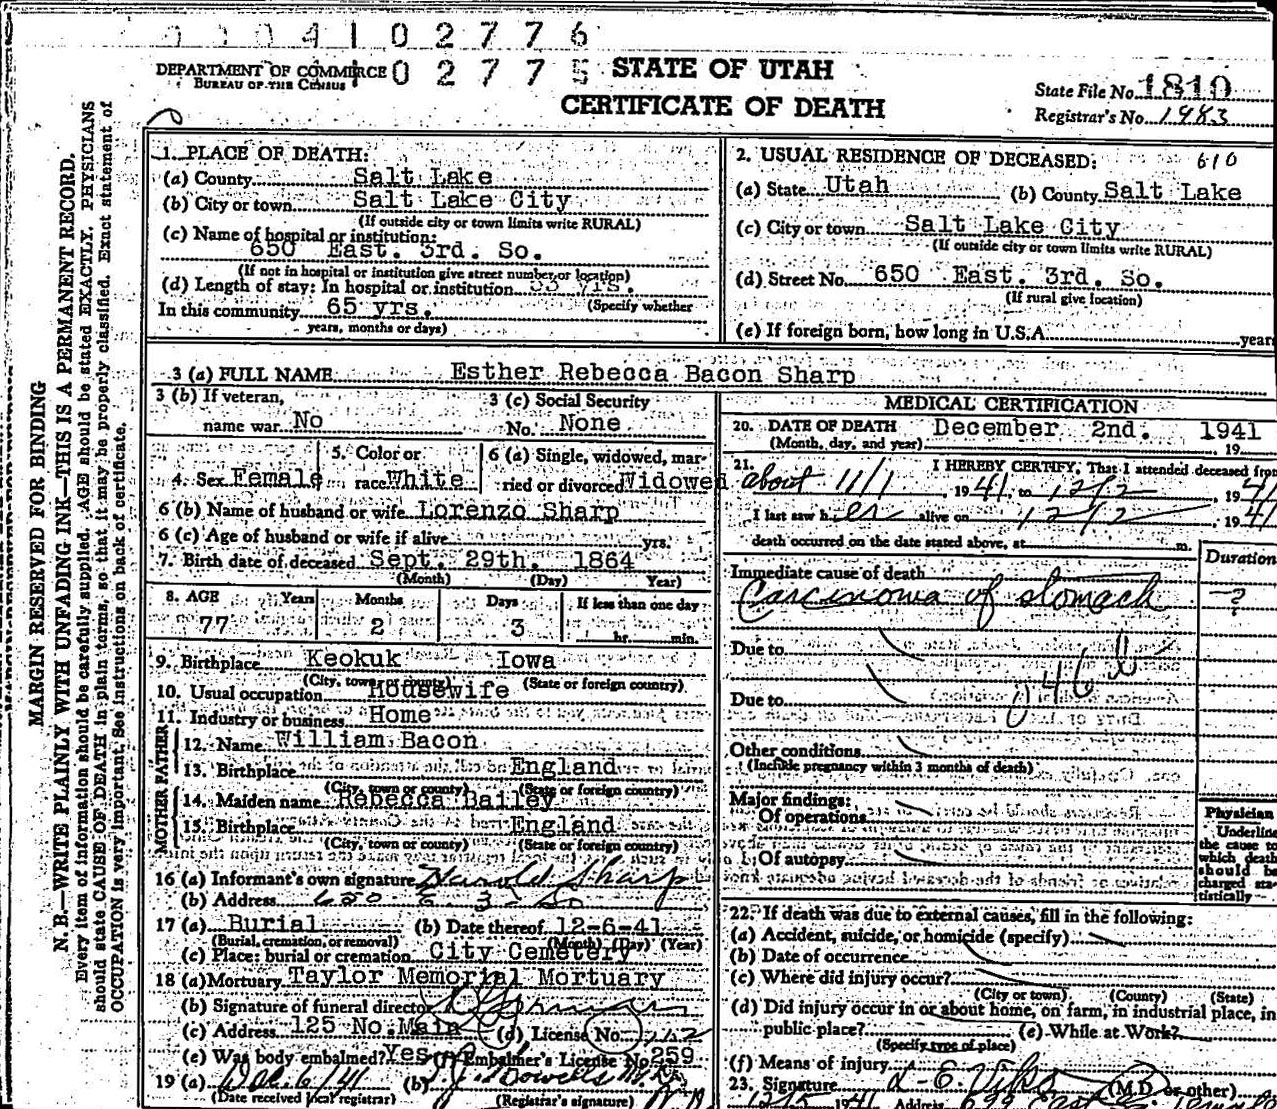 0 0 0 4 1 0 2 7 7 6
DEPARTMENT OF COMMERCE
BUREAU OF THE CENSUS
1 0 2 7 7 5
STATE OF UTAH
CERTIFICATE OF DEATH
State File No. 1810
Registrar's No. 1983
MARGIN RESERVED FOR BINDING
N. B.—WRITE PLAINLY WITH UNFADING INK—THIS IS A PERMANENT RECORD.
Every item of information should be carefully supplied. AGE should be stated EXACTLY. PHYSICIANS
should state CAUSE OF DEATH in plain terms, so that it may be properly classified. Exact statement of
OCCUPATION is very important. See instructions on back of certificate.
1. PLACE OF DEATH:
(a) County Salt Lake
(b) City or town Salt Lake City
(If outside city or town limits write RURAL)
(c) Name of hospital or institution:
650 East. 3rd. So.
(If not in hospital or institution give street number or location)
(d) Length of stay: In hospital or institution yrs.
(Specify whether
In this community 65 yrs.
years, months or days)
2. USUAL RESIDENCE OF DECEASED: 610
(a) State Utah (b) County Salt Lake
(c) City or town Salt Lake City
(If outside city or town limits write RURAL)
(d) Street No. 650 East. 3rd. So.
(If rural give location)
(e) If foreign born, how long in U.S.A. years
3 (a) FULL NAME Esther Rebecca Bacon Sharp
3 (b) If veteran,
name war No
3 (c) Social Security
No. None
4. Sex Female
5. Color or
race White
6 (a) Single, widowed, mar-
ried or divorced Widowed
6 (b) Name of husband or wife Lorenzo Sharp
6 (c) Age of husband or wife if alive yrs.
7. Birth date of deceased Sept. 29th. 1864
(Month) (Day) Year)
8. AGE Years Months Days If less than one day
77 2 3 hr. min.
9. Birthplace Keokuk Iowa
(City, town or county) (State or foreign country)
10. Usual occupation Housewife
11. Industry or business Home
FATHER
12. Name William Bacon
13. Birthplace England
(City, town or county) (State or foreign country)
MOTHER
14. Maiden name Rebecca Bailey
15. Birthplace England
(City, town or county) (State or foreign country)
16 (a) Informant's own signature Harold Sharp
(b) Address 650 E 3 - So
17 (a) Burial (b) Date thereof 12-6-41
(Burial, cremation, or removal) (Month) (Day) (Year)
(c) Place: burial or cremation City Cemetery
18 (a) Mortuary Taylor Memorial Mortuary
(b) Signature of funeral director
(c) Address 125 No. Main (d) License No.
(e) Was body embalmed? Yes (f) Embalmer's License No. 259
19 (a) Dec. 6/41 (b)
(Date received local registrar) (Registrar's signature)
MEDICAL CERTIFICATION
20. DATE OF DEATH December 2nd. 1941
(Month, day, and year) 19
21. I HEREBY CERTIFY, That I attended deceased from
about 11/1, 1941, to 12/2, 1941
I last saw her alive on 12/2, 1941
death occurred on the date stated above, at m.
Duration
Immediate cause of death
Carcinoma of stomach ?
Due to
046 b
Due to
Other conditions
(Include pregnancy within 3 months of death)
Major findings:
Of operations
Of autopsy
Physician
Underline
the cause to
which death
should be
charged sta-
tistically
22. If death was due to external causes, fill in the following:
(a) Accident, suicide, or homicide (specify)
(b) Date of occurrence
(c) Where did injury occur?
(City or town) (County) (State)
(d) Did injury occur in or about home, on farm, in industrial place, in
public place? (e) While at Work?
(Specify type of place)
(f) Means of injury
23. Signature (M.D. or other)
1941 Address